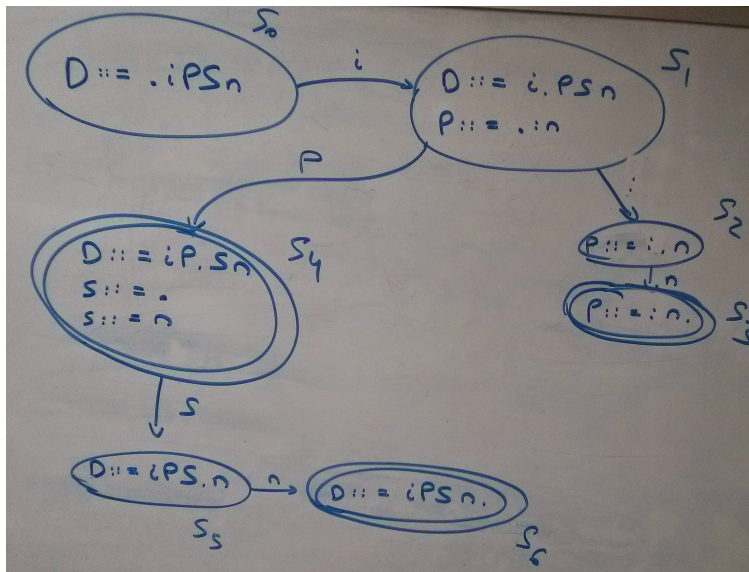 S0
D ::= .iPSn
i
S1
D ::= i.PSn
P ::= .:n
P
:
S2
P ::= :.n
n
S3
P ::= :n.
S4
D ::= iP.Sn
S ::= .
S ::= n
S
D ::= iPS.n
S5
n
D ::= iPSn.
S6